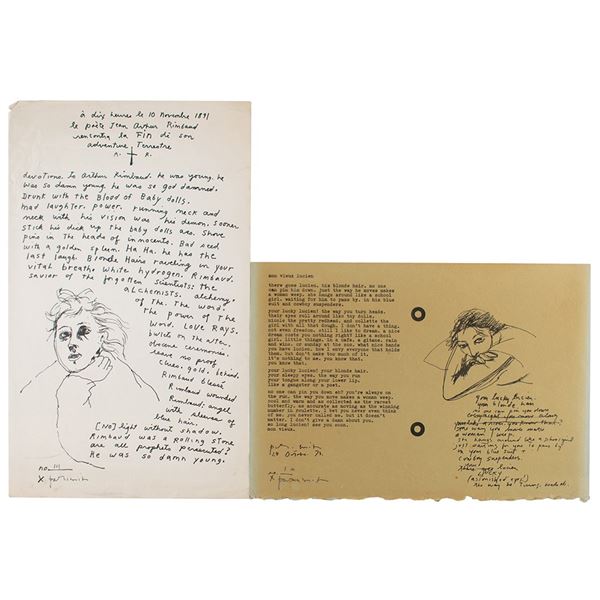 à dix heures le 10 Novembre 1891
le poète Jean Arthur Rimbaud
rencontra la FIN de son
adventure Terrestre
A. R.
devotions. To Arthur Rimbaud. he was young. he
was so damn young. he was so god damned.
Drunk with the Blood of Baby dolls.
mad laughter. power. running neck and
neck with his vision was his demon. Sooner
stick his dick up the baby dolls ass. Shove
pins in the heads of innocents. Bad seed
with a golden spleen. Ha Ha. he has the
last laugh. Blonde Hairs raveling in your
vital breath. White hydrogen. Rimbaud.
savior of the forgotten scientists: the
alchemists. alchemy.
of the. The word.
the power of the
word. Love Rays.
obscene ceremonies.
leave no proof
clues. gold. behind.
Rimbaud blessed
Rimbaud wounded
Rimbaud: angel
with sleeves of
blue hair.
[No] light without shadow.
Rimbaud was a Rolling Stone
are all prophets persecuted?
He was so damn young.
no. 111
X patti smith
mon vieux lucien
there goes lucien. his blonde hair. no one
can pin him down. just the way he moves makes
a woman weep. she hangs around like a school
girl. waiting for him to pass by. in his blue
suit and cowboy suspenders.
your lucky lucien! the way you turn heads.
their eyes roll around like toy dolls.
nicole the pretty redhead. and collette the
girl with all that dough. I don't have a thing.
not even freedom. still I like to dream. a nice
dream costs you nothing right? like a school
girl. little things. in a cafe. a gitane. rain
and wine. or sunday at the zoo. what kind hands
you have lucien. how I envy everything that holds
them. but don't make too much of it.
it's nothing to me. you know that.
you know that.
your lucky lucien! your blonde hair.
your sleepy eyes. the way you run
your tongue along your lower lip.
like a gangster or a poet.
no one can pin you down ah? you're always on
the run. the way you move makes a woman weep.
red and warm and as collected as the ascarot
butterfly. as accurate as moving as the winning
number in roulette. I bet you never even think
of me. you never called me. but it doesn't
matter. I don't give a damn about you.
so long lucien! see you soon.
mon vieux.
patti smith
no. 10
X patti smith
you lucky lucien.
your blonde hair
no one can pin you down
the way you move makes
a woman weep.
She hangs around like a school girl
just waiting for you to pass by
in your blue suit +
cowboy suspenders.
there goes lucien
LUCKY
(astonished eyes)